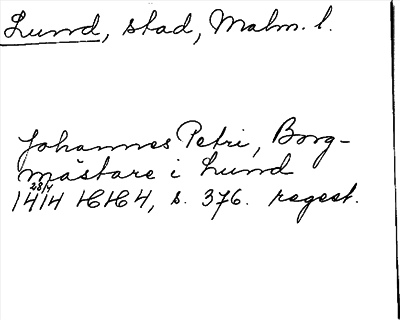 Lund, stad, Malm. l.
Johannes Petri, Borg-
mästare i Lund
28/4
1414 HH4, s. 376. regest.